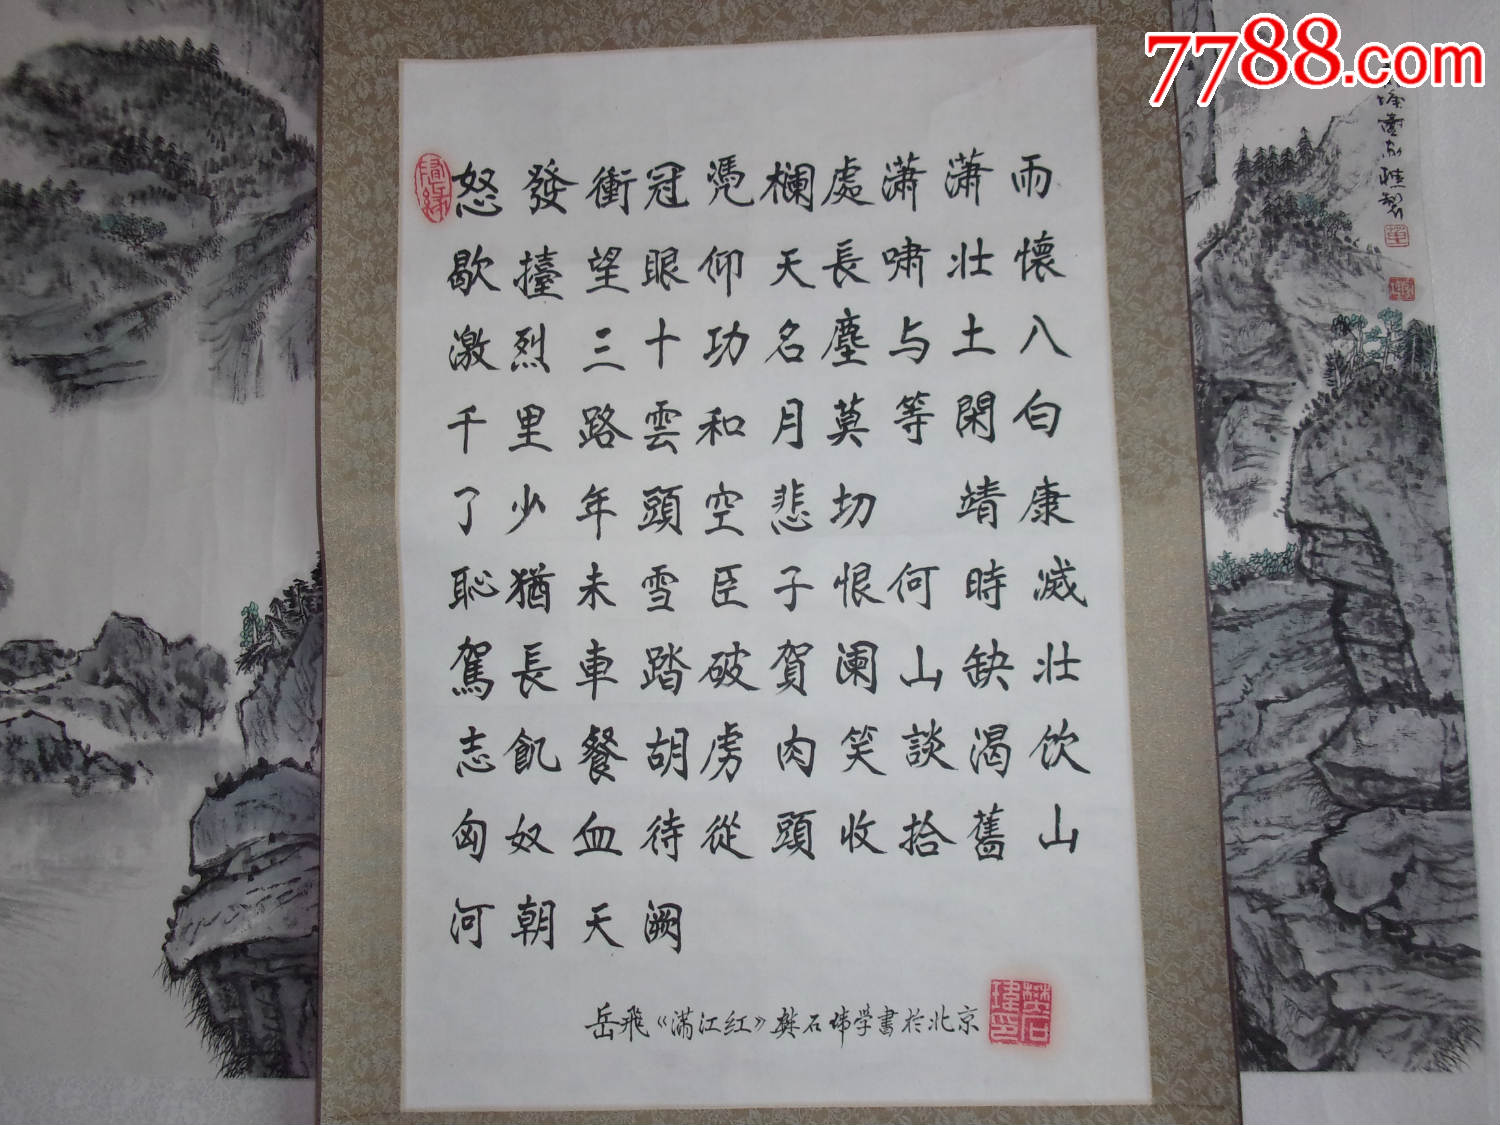 7788.com
怒發衝冠凴欄處潇潇雨
歇擡望眼仰天長啸壮懷
激烈三十功名塵与土八
千里路雲和月莫等閑白
了少年頭空悲切 靖康
恥猶未雪臣子恨何時滅
駕長車踏破賀阑山缺壮
志飢餐胡虏肉笑談渴饮
匈奴血待從頭收拾舊山
河朝天阙
岳飛《满江红》樊石玮学書於北京